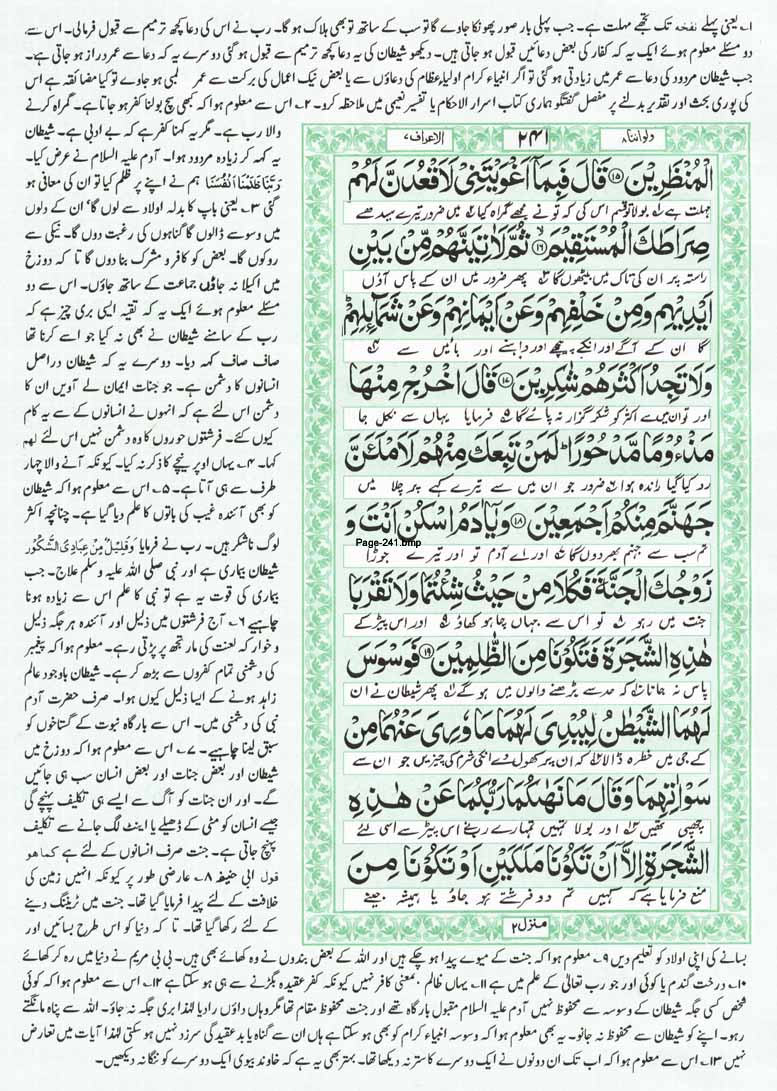 ۱۔ یعنی پہلے نفخہ تک تجھے مہلت ہے۔ جب پہلی بار صور پھونکا جاوے گا تو سب کے ساتھ تو بھی ہلاک ہو گا۔ رب نے اس کی دعا کچھ ترمیم سے قبول فرمالی۔ اس سے
دو مسئلے معلوم ہوئے ایک یہ کہ کفار کی بعض دعائیں قبول ہو جاتی ہیں۔ دیکھو شیطان کی یہ دعا کچھ ترمیم سے قبول ہو گئی دوسرے یہ کہ دعا سے عمر دراز ہو جاتی ہے۔
جب شیطان مردود کی دعا سے عمر میں زیادتی ہو گئی تو اگر انبیاء کرام اولیاء عظام کی دعاؤں سے یا بعض نیک اعمال کی برکت سے عمر لمبی ہو جاوے تو کیا مضائقہ ہے اس
کی پوری بحث اور تقدیر بدلنے پر مفصل گفتگو ہماری کتاب اسرار الاحکام یا تفسیر نعیمی میں ملاحظہ کرو۔ ۲۔ اس سے معلوم ہوا کہ کبھی سچ بولنا کفر ہو جاتا ہے۔ گمراہ کرنے
والا رب ہے۔ مگر یہ کہنا کفر ہے کہ بے ادبی ہے۔ شیطان
یہ کہہ کر زیادہ مردود ہوا۔ آدم علیہ السلام نے عرض کیا۔
رَبَّنَا ظَلَمْنَا اَنْفُسَنَا ہم نے اپنے پر ظلم کیا تو ان کی معافی ہو
گئی ۳۔ یعنی باپ کا بدلہ اولاد سے لوں گا' ان کے دلوں
میں وسوسے ڈالوں گا گناہوں کی رغبت دوں گا۔ نیکی سے
روکوں گا۔ بعض کو کافر و مشرک بنا دوں گا تا کہ دوزخ
میں اکیلا نہ جاؤں جماعت کے ساتھ جاؤں۔ اس سے دو
مسئلے معلوم ہوئے ایک یہ کہ تقیہ ایسی بری چیز ہے کہ
رب کے سامنے شیطان نے بھی نہ کیا جو اسے کرنا تھا
صاف صاف کہہ دیا۔ دوسرے یہ کہ شیطان دراصل
انسانوں کا دشمن ہے۔ جو جنات ایمان لے آویں ان کا
دشمن اس لئے ہے کہ انہوں نے انسانوں کے سے یہ کام
کیوں کئے۔ فرشتوں حوروں کا وہ دشمن نہیں اس لئے لهم
کہا۔ ۴۔ یہاں اوپر نیچے کا ذکر نہ کیا۔ کیونکہ آنے والا چہار
طرف سے ہی آتا ہے۔ ۵۔ اس سے معلوم ہوا کہ شیطان
کو بھی آئندہ غیب کی باتوں کا علم دیا گیا ہے۔ چنانچہ اکثر
لوگ ناشکر ہیں۔ رب نے فرمایا وَقَلِيْلٌ مِّنْ عِبَادِيَ الشَّكُوْرُ
شیطان بیماری ہے اور نبی صلی اللہ علیہ وسلم علاج۔ جب
بیماری کی قوت یہ ہے تو نبی کا علم اس سے زیادہ ہونا
چاہیے ۶۔ آج فرشتوں میں ذلیل اور آئندہ ہر جگہ ذلیل
و خوار کہ لعنت کی مار تجھ پر پڑتی رہے۔ معلوم ہوا کہ پیغمبر
کی دشمنی تمام کفروں سے بڑھ کر ہے۔ شیطان باوجود عالم
زاہد ہونے کے ایسا ذلیل کیوں ہوا۔ صرف حضرت آدم
نبی کی دشمنی میں۔ اس سے بارگاہ نبوت کے گستاخوں کو
سبق لینا چاہیے۔ ۷۔ اس سے معلوم ہوا کہ دوزخ میں
شیطان اور بعض جنات اور بعض انسان سب ہی جائیں
گے۔ اور ان جنات کو آگ سے ایسے ہی تکلیف پہنچے گی
جیسے انسان کو مٹی کے ڈھیلے یا اینٹ لگ جانے سے تکلیف
پہنچ جاتی ہے۔ جنت صرف انسانوں کے لئے ہے كما هو
قول ابی حنیفہ ۸۔ عارضی طور پر کیونکہ انہیں زمین کی
خلافت کے لئے پیدا فرمایا گیا تھا۔ جنت میں ٹریننگ دینے
کے لئے رکھا گیا تھا۔ تا کہ دنیا کو اس طرح بسائیں اور
ولواننا ۸
۲۴۱
الاعراف ۷
الْمُنْظَرِيْنَ ۱۵ قَالَ فَبِمَاۤ اَغْوَيْتَنِيْ لَاَقْعُدَنَّ لَهُمْ
مہلت ہے بولا تو قسم اس کی کہ تو نے مجھے گمراہ کیا میں ضرور تیرے سیدھے
صِرَاطَكَ الْمُسْتَقِيْمَ ۱۶ ثُمَّ لَاٰتِيَنَّهُمْ مِّنْۢ بَيْنِ
راستہ پر ان کی تاک میں بیٹھوں گا پھر ضرور میں ان کے پاس آؤں
اَيْدِيْهِمْ وَمِنْ خَلْفِهِمْ وَعَنْ اَيْمَانِهِمْ وَعَنْ شَمَآئِلِهِمْ
گا ان کے آگے اور انکے پیچھے اور داہنے اور بائیں سے
وَلَا تَجِدُ اَكْثَرَهُمْ شٰكِرِيْنَ ۱۷ قَالَ اخْرُجْ مِنْهَا
اور تو ان میں سے اکثر کو شکر گزار نہ پائے گا فرمایا یہاں سے نکل جا
مَذْءُوْمًا مَّدْحُوْرًا لَمَنْ تَبِعَكَ مِنْهُمْ لَاَمْلَئَنَّ
رد کیا گیا راندہ ہوا ضرور جو ان میں سے تیرے کہے پر چلا میں
جَهَنَّمَ مِنْكُمْ اَجْمَعِيْنَ ۱۸ وَيٰۤاٰدَمُ اسْكُنْ اَنْتَ وَ
Page-241.bmp
تم سب سے جہنم بھر دوں گا اور اے آدم تو اور تیرے جوڑا
زَوْجُكَ الْجَنَّةَ فَكُلَا مِنْ حَيْثُ شِئْتُمَا وَلَا تَقْرَبَا
جنت میں رہو تو اس سے جہاں چاہو کھاؤ اور اس پیڑ کے
هٰذِهِ الشَّجَرَةَ فَتَكُوْنَا مِنَ الظّٰلِمِيْنَ ۱۹ فَوَسْوَسَ
پاس نہ جانا کہ حد سے بڑھنے والوں میں ہو گے پھر شیطان نے ان
لَهُمَا الشَّيْطٰنُ لِيُبْدِيَ لَهُمَا مَا وٗرِيَ عَنْهُمَا مِنْ
کے جی میں خطرہ ڈالا کہ ان پر کھول دے انکی شرم کی چیزیں جو ان سے
سَوْاٰتِهِمَا وَقَالَ مَا نَهٰىكُمَا رَبُّكُمَا عَنْ هٰذِهِ
چھپی تھیں اور بولا تمہیں تمہارے رب نے اس پیڑ سے اسی لئے
الشَّجَرَةِ اِلَّاۤ اَنْ تَكُوْنَا مَلَكَيْنِ اَوْ تَكُوْنَا مِنَ
منع فرمایا ہے کہ کہیں تم دو فرشتے نہ ہو جاؤ یا ہمیشہ جینے
منزل ۲
بسانے کی اپنی اولاد کو تعلیم دیں ۹۔ معلوم ہوا کہ جنت کے میوے پیدا ہو چکے ہیں اور اللہ کے بعض بندوں نے وہ کھائے بھی ہیں۔ بی بی مریم نے دنیا میں رہ کر کھائے
۱۰۔ درخت گندم یا کوئی اور جو رب تعالیٰ کے علم میں ہے ۱۱۔ یہاں ظالم بمعنی کافر نہیں کیونکہ کفر عقیدہ بگڑنے سے ہی ہو سکتا ہے ۱۲۔ اس سے معلوم ہوا کہ کوئی
شخص کسی جگہ شیطان کے وسوسہ سے محفوظ نہیں آدم علیہ السلام مقبول بارگاہ تھے اور جنت محفوظ مقام تھا مگر وہاں داؤں مار دیا لہذا بری جگہ نہ جاؤ۔ اللہ سے پناہ مانگتے
رہو۔ اپنے کو شیطان سے محفوظ نہ جانو۔ یہ بھی معلوم ہوا کہ وسوسہ انبیاء کرام کو بھی ہو سکتا ہے ہاں ان سے گناہ یا بد عقیدگی سرزد نہیں ہو سکتی لہذا آیات میں تعارض
نہیں ۱۳۔ اس سے معلوم ہوا کہ اب تک ان دونوں نے ایک دوسرے کا ستر نہ دیکھا تھا۔ بہتر بھی یہ ہے کہ خاوند بیوی ایک دوسرے کو ننگا نہ دیکھیں۔